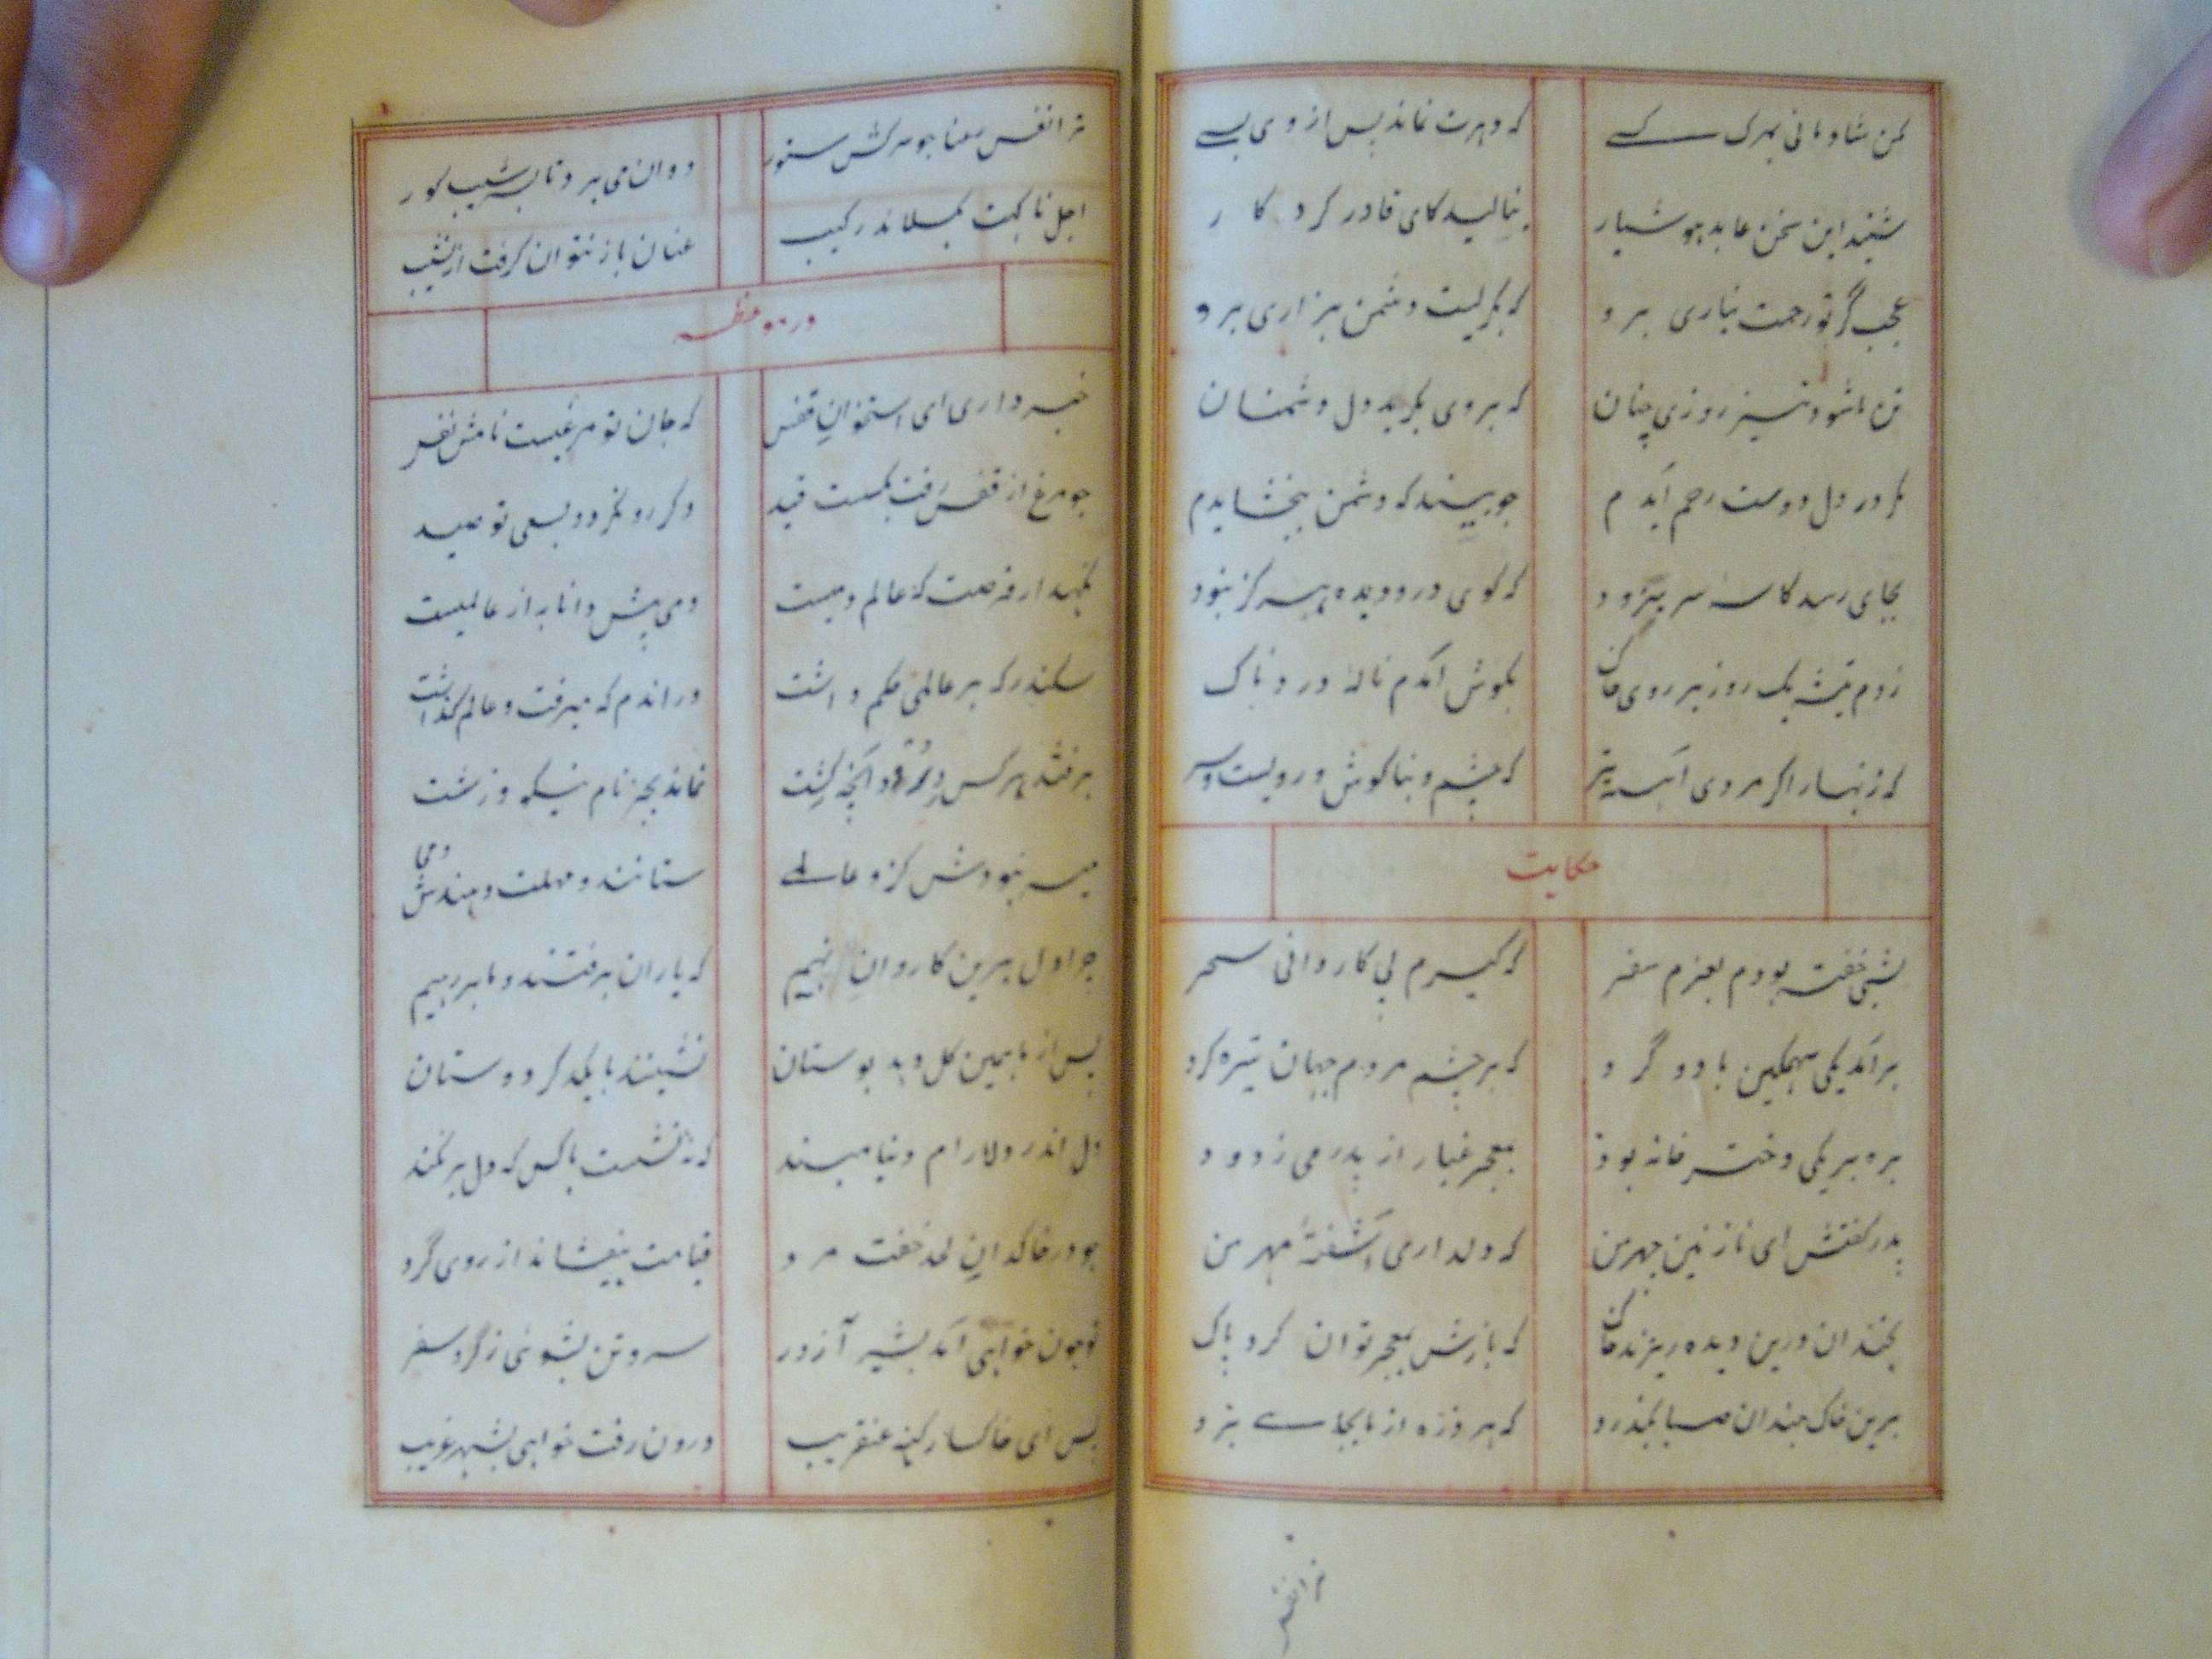 مکن شادمانی بمرک کسے که دهرت نماند پس از وی بسے
شنید این سخن عابد هوشیار بنالید کای قادر کردکار
عجب گر تو رحمت نیاری برو که بکریست دشمن بزاری برو
تن ما شود نیز روزی چنان که بر وی بکرید دل دشمنان
مکر در دل دوست رحم آیدم جو بیند که دشمن ببخشایدم
بجای رسد کاسهٔ سر بزود که کوی درو دیده هرکز نبود
زدم تیشه یک روز بر روی خاک بکوش آمدم نالهٔ دردناک
که زنهار اکر مردی آهسته تر که چشم و بناکوش و رویست و سر
حکایت
شبی خفته بودم بعزم سفر که کیرم پی کاروانی سحر
برآمد یکی سهمکین باد و گرد که بر چشم مردم جهان تیره کرد
بره بر یکی دختر خانه بود بمعجر غبار از پدر می زدود
پدر کفتش ای نازنین جهر من که داری دل آشفتهٔ مهر من
بخندان درین دیده ریزند خاک که بازش بمعجر توان کرد پاک
برین خاک جندان صبا بکذرد که هر ذره از ما بجاے برد
ترا نفس رعنا جو سرکش ستور دوان می برد تا بسرشیب کور
اجل ناکهت بکسلاند رکیب عنان باز نتوان کرفت از نشیب
در موعظه
خبر داری ای استخوان قفس که جان تو مرغیست نامش نفس
جو مرغ از قفس رفت بکسست قید دکر ره نکردد بسعی تو صید
نکهدار فرصت که عالم دمیست دمی پیش دانا به از عالمیست
سکندر که بر عالمی حکم داشت در اندم که میرفت و عالم کذاشت
میسر نبودش کزو عالمے ستانند و مهلت دهندش دمی
برفتند هرکس درود آنچه کشت نماند بجز نام نیکو و زشت
چرا دل برین کاروان نهیم که یاران برفتند و ما بر رهیم
پس از ما همین کل دهد بوستان نشینند با یکدکر دوستان
دل اندر دلارام دنیا مبند که ننشست با کس که دل برنکند
جو در خاکدان لحد خفت مرد قیامت بیفشاند از روی گرد
تو جون خواهی آمد بشیراز در سر و تن بشوئی ز گرد سفر
پس ای خاکسار کنه عنقریب درون رفت خواهی بشهر غریب
ترا نفس